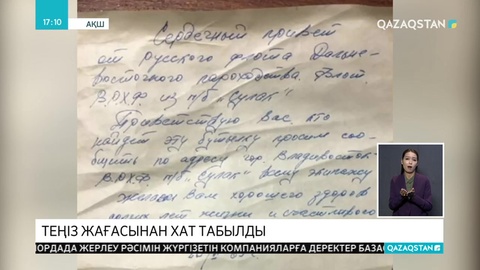 17:10 АҚШ
QAZAQSTAN
Сердечный привет
от русского флота Дальне-
восточного пароходства.
В.О.Х.Ф. из п/б "Сулак"
Приветствую Вас, кто
найдет эту бутылку просим соо-
бщить по адресу гор. Владивосток
В.О.Х.Ф. п/б "Сулак" всему экипажу
желаем Вам хорошего здоровья
долгих лет жизни и счастливого
ТЕҢІЗ ЖАҒАСЫНАН ХАТ ТАБЫЛДЫ
ОРДАДА ЖЕРЛЕУ РӘСІМІН ЖҮРГІЗЕТІН КОМПАНИЯЛАРҒА ДЕРЕКТЕР БАЗАС
QAZAQSTAN